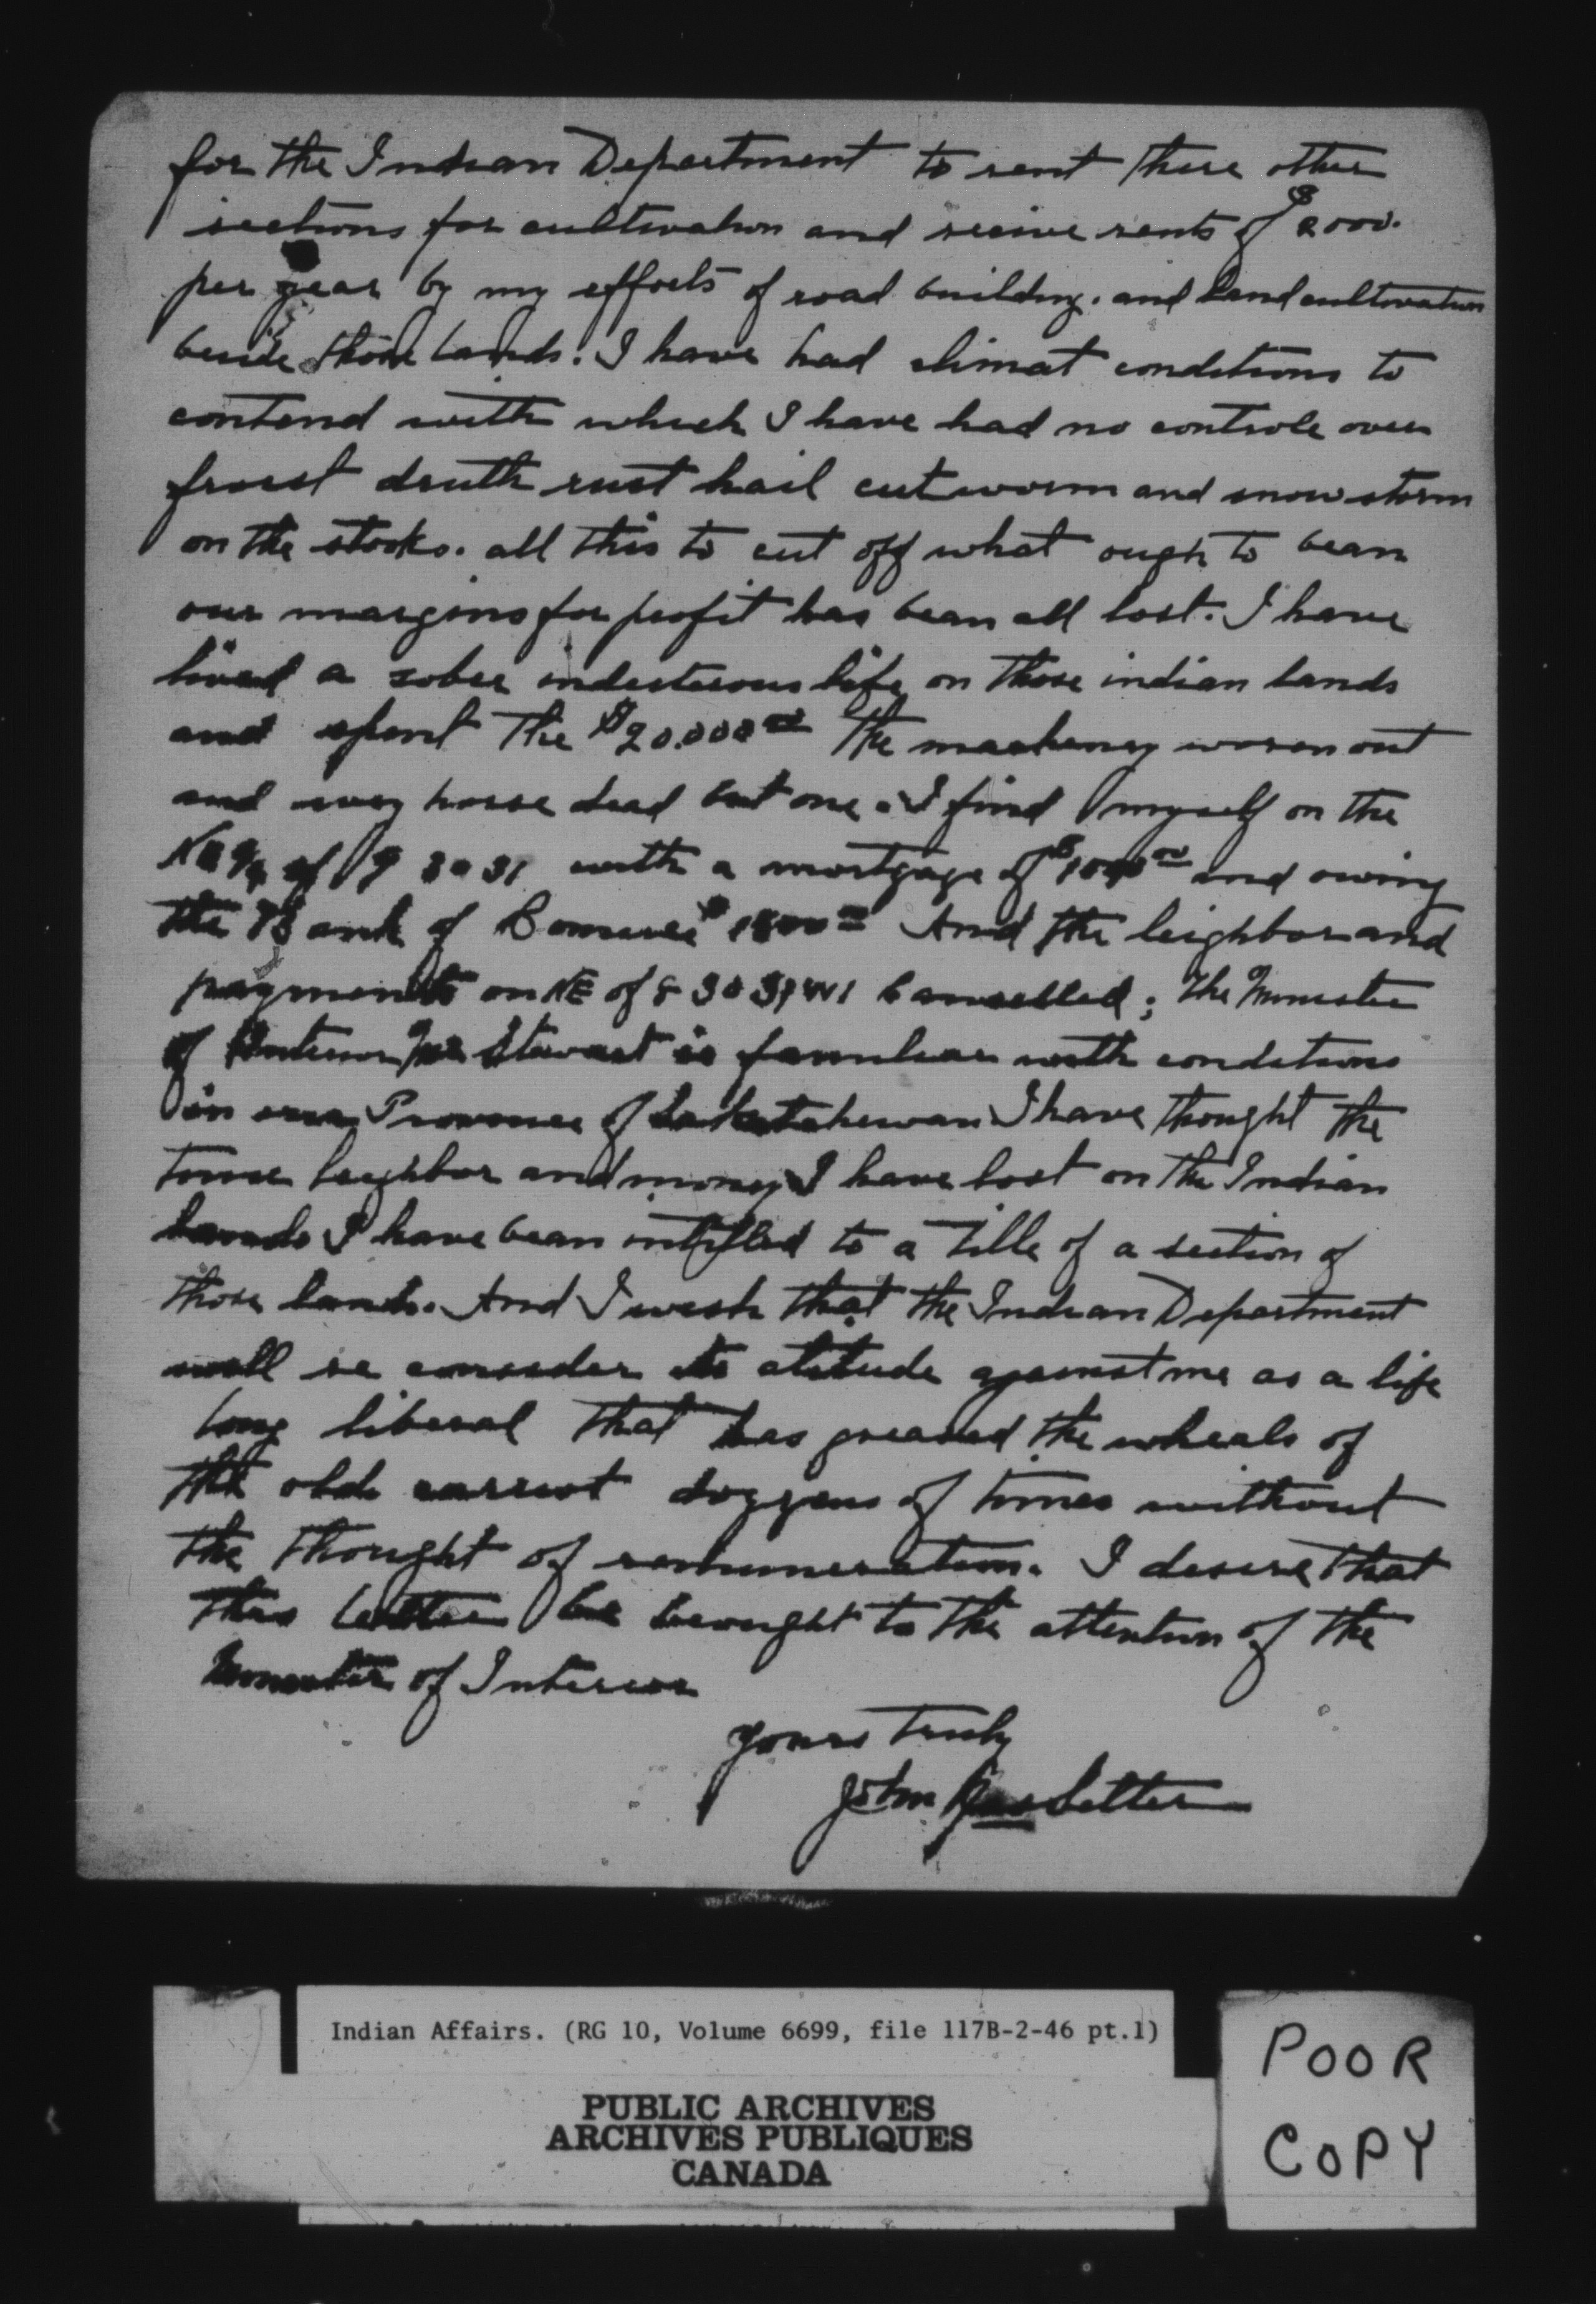 for the Indian Department to rent these other
sections for cultivation and receive rents of $2000.
per year by my efforts of road building. and land cultivation
beside those lands. I have had climat conditions to
contend with which I have had no controle over
froest druth rust hail cutworm and snow storm
on the stooks. all this to cut off what ough to bean
our margins for profit has bean all lost. I have
lived a sober indesterous life on those indian lands
and spent The $20.000 00 The machenery woren out
and every horse dead but one. I find myself on the
of 9 30 31 with a mortgage of and owing
the Bank of 00 And the leighbor and
payments on NE of 8 30 31 W1 Canselled; The Minester
of Interior Mr Stewart is familear with conditions
in Province of I have thought the
time leighbor and money I have lost on the Indian
lands I have bean intitled to a Title of a section of
those lands. And I wesh that the Indian Department
will re consider its atitude against me as a life
long liberal that has greased the wheals of
the old carriot doggens of times without
the thought of remuneration. I desire that
this letter be brought to the attention of the
Minester of Interior
yours truly
John
Indian Affairs. (RG 10, Volume 6699, file 117B-2-46 pt.1)
PUBLIC ARCHIVES
ARCHIVES PUBLIQUES
CANADA
POOR
COPY